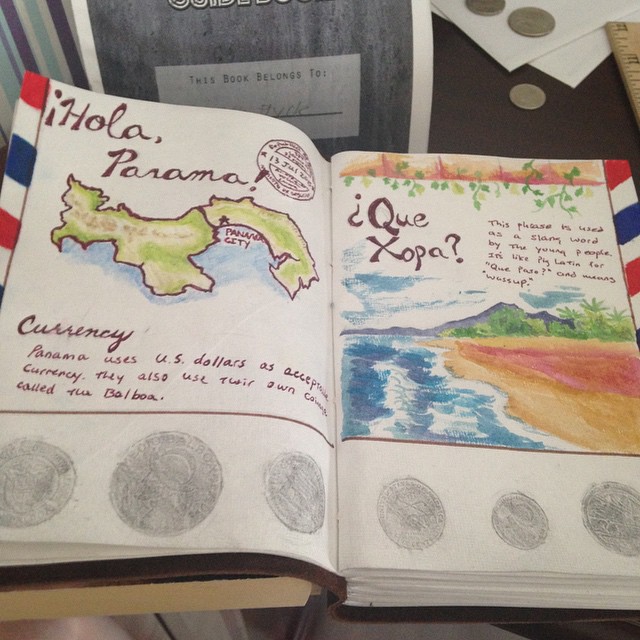 THIS BOOK BELONGS TO:
¡Hola,
Panama!
PANAMA
CITY
Currency
Panama uses U.S. dollars as accepted
currency. They also use their own coinage
called the Balboa.
¿Que
Xopa?
This phase is used
as a slang word
by the young people.
It's like Pig Latin for
"Que Paso?" and means
"wassup."